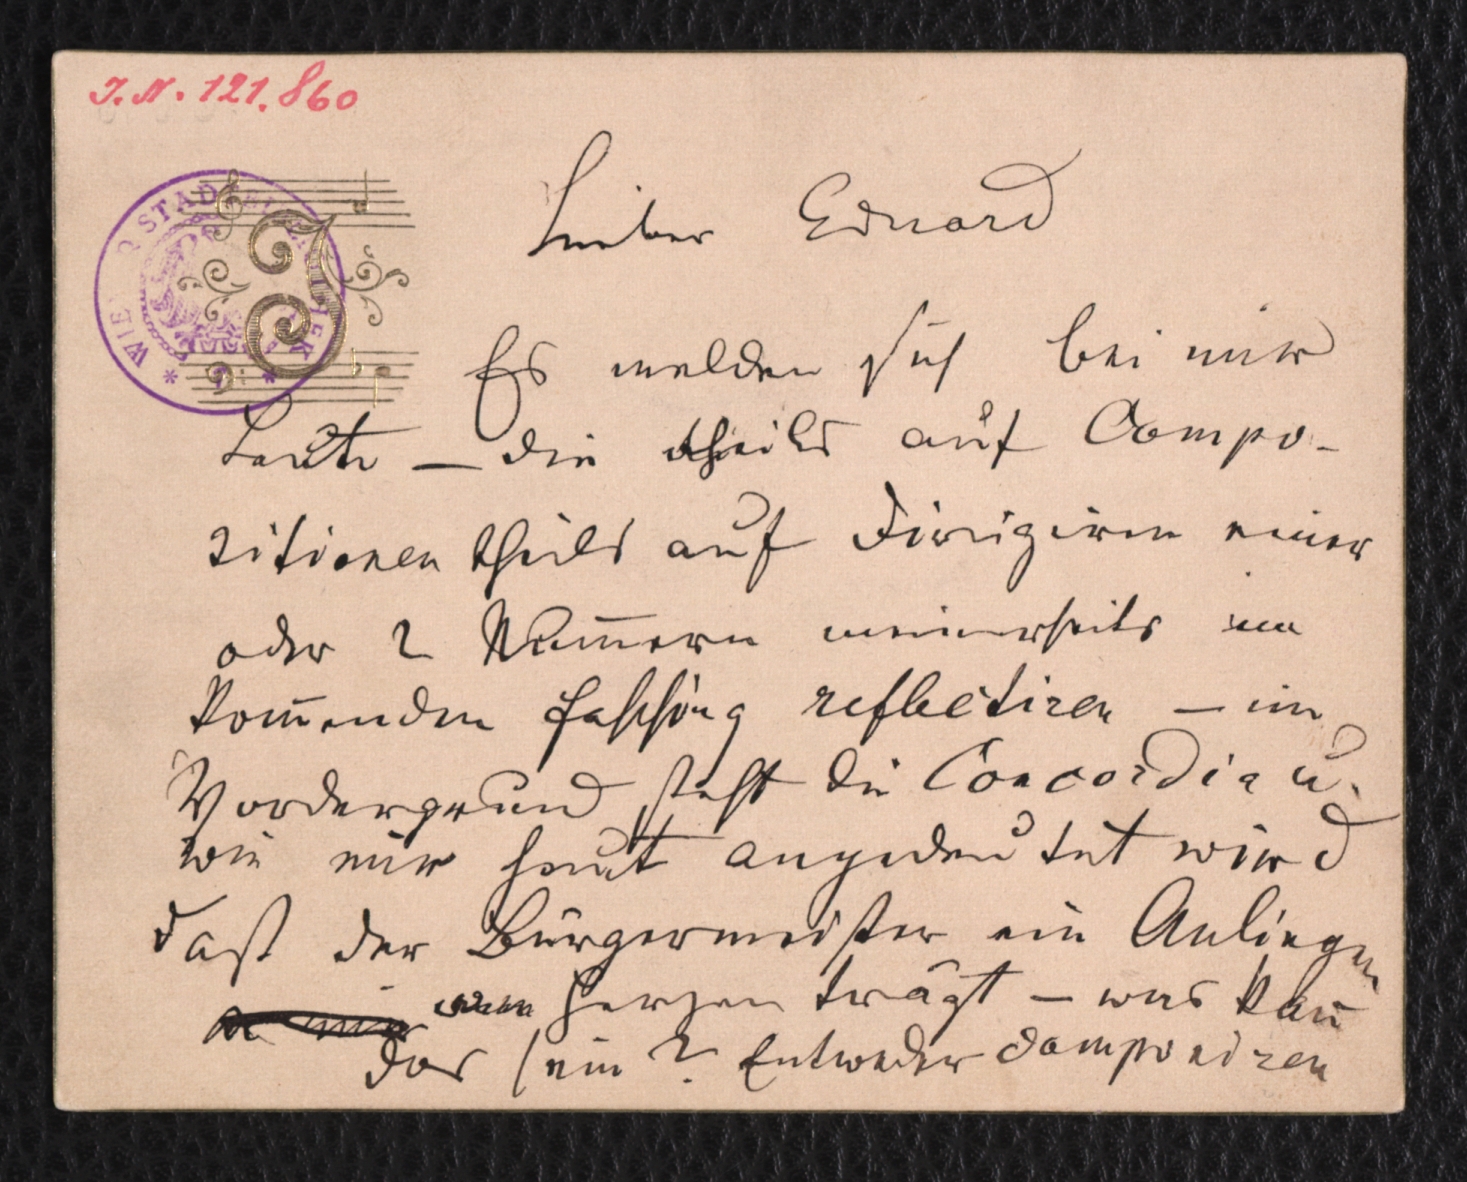 I. N. 121.860
WIENER STADTBIBLIOTHEK
J
Lieber Eduard
Es melden sich bei mir
Leute — die theils auf Compo-
zitionen theils auf Dirigiren einer
oder 2 Num̄ern meinerseits im
kom̄enden Fasching reflectiren — im
Vordergrund steht die Concordia u.
wie mir heut angedeutet wird
dass der Bürgermeister ein Anliegen
Herzen trägt — was kan̄
das sein? Entweder componiren